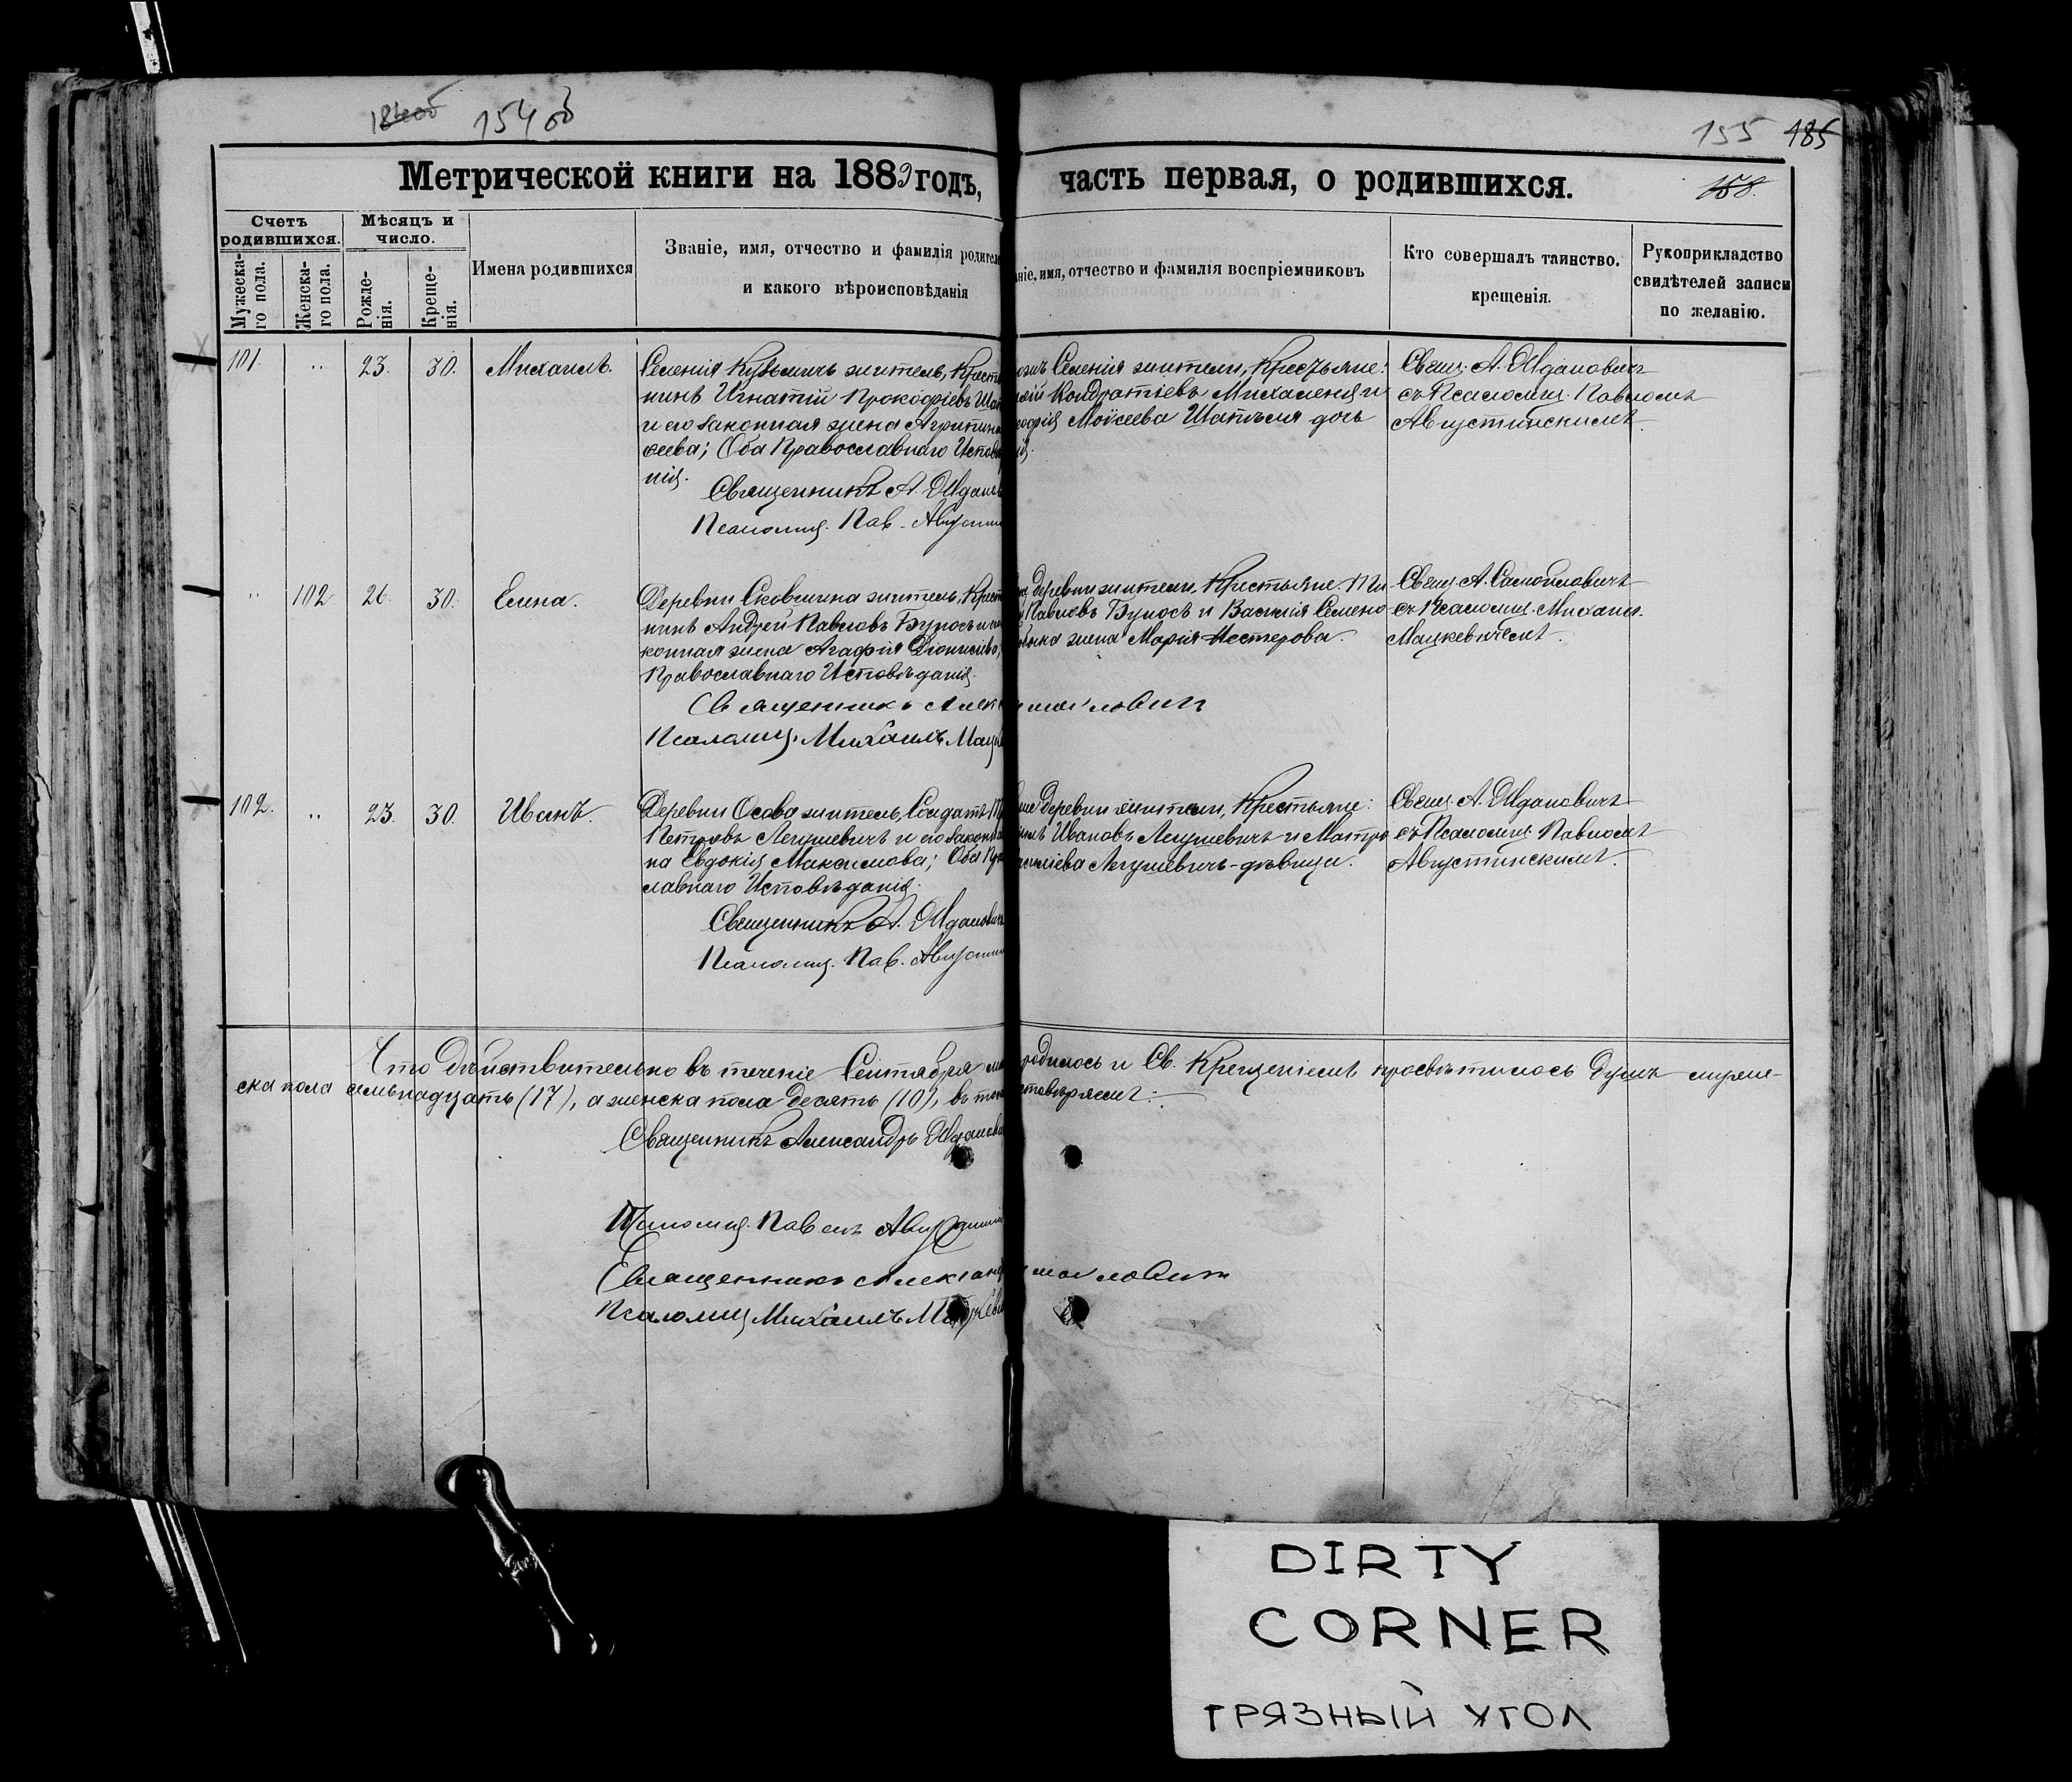 154 об
155 185
158.
Метрической книги на 1889 годъ, часть первая, о родившихся.
Счетъ родившихся.
Мужеска-
го пола.
Женска-
го пола.
Мѣсяцъ и
число.
Рожде-
нія.
Креще-
нія.
Имена родившихся
Званіе, имя, отчество и фамилія родител
и какого вѣроисповѣданія
ніе, имя, отчество и фамилія воспріемниковъ
Кто совершалъ таинство.
крещенія.
Рукоприкладство
свидѣтелей записи
по желанію.
101. " 23. 30. Михаилъ.
Селенія Кузьмичъ житель, Крест
нинъ Игнатій Прокофіевъ Шат
и его законная жена Агрипина
сеева; Оба Православнаго Исповѣд
нія.
Священникъ А. Жданов
Псаломщ. Пав. Августин
Селенія жители, Крестьяне:
Кондратіевъ Михаленя и
Моѵсеева Шатыля дочь
Свящ. А. Ждановичъ
съ Псаломщ. Павломъ
Августинскимъ.
" 102 26. 30. Елена.
Деревни Сковшина житель, Крест
нинъ Андрей Павловъ Бурось и
конная жена Агафія Діонисіева,
Православнаго Исповѣданія.
Священникъ Алек моиловичъ
Псаломщ. Михаилъ Мацк
деревни жители, Крестьяне
Павловъ Бурось и Василія Семено
жена Марія Нестерова
Свящ. А. Самойловичъ
съ Псаломщ. Михаил.
Мацкевичемъ.
102. " 23. 30. Иванъ.
Деревни Осова житель, Солдатъ
Петровъ Легушевичъ и его законна
на Евдокія Максимова; Оба Пра
славнаго Исповѣданія.
Священникъ А. Жданович
Псаломщ. Пав. Августин
деревни жители, Крестьяне:
Ивановъ Легушевичъ и Матро
Легушевичъ - дѣвица.
Свящ. А. Ждановичъ
съ Псаломщ. Павломъ
Августинскимъ.
Что дѣйствительно въ теченіе Сентября родилось и Св. Крещеніемъ просвѣтилось душъ муже-
ска пола семьнадцать (17), а женска пола десять (10), въ том
Священникъ Александръ Жданов
Псаломщ. Павелъ Августин
Священникъ Александ моиловичъ
Псаломщ Михаилъ Мацкеви
DIRTY
CORNER
ГРЯЗНЫЙ УГОЛ